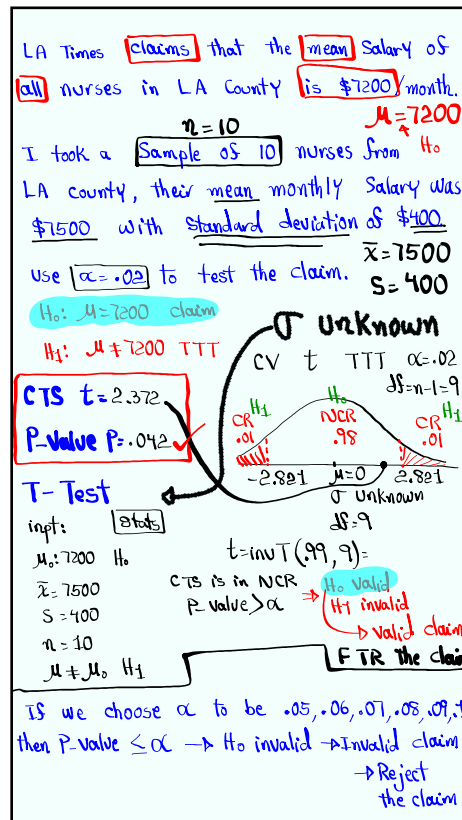 LA Times claims that the mean Salary of
all nurses in LA County is $7200/month.
n=10
μ=7200
H₀
I took a Sample of 10 nurses from
LA county, their mean monthly Salary was
$7500 with Standard deviation of $400.
x̄=7500
S=400
use α=.02 to test the claim.
H₀: μ=7200 claim
H₁: μ≠7200 TTT
σ unknown
CV t TTT α=.02
df=n-1=9
CTS t=2.372
P-value P=.042 ✓
H₁
CR
.01
H₀
NCR
.98
H₁
CR
.01
-2.821 μ=0 2.821
σ unknown
df=9
T-Test
inpt: Stats
μ₀: 7200 H₀
x̄=7500
S=400
n=10
μ≠μ₀ H₁
t=invT(.99, 9)=
CTS is in NCR
P-value>α ⇒ H₀ valid
H1 invalid
→ valid claim
FTR the clai
If we choose α to be .05, .06, .07, .08, .09, 
then P-value ≤ α → H₀ invalid → Invalid claim
→ Reject
the claim